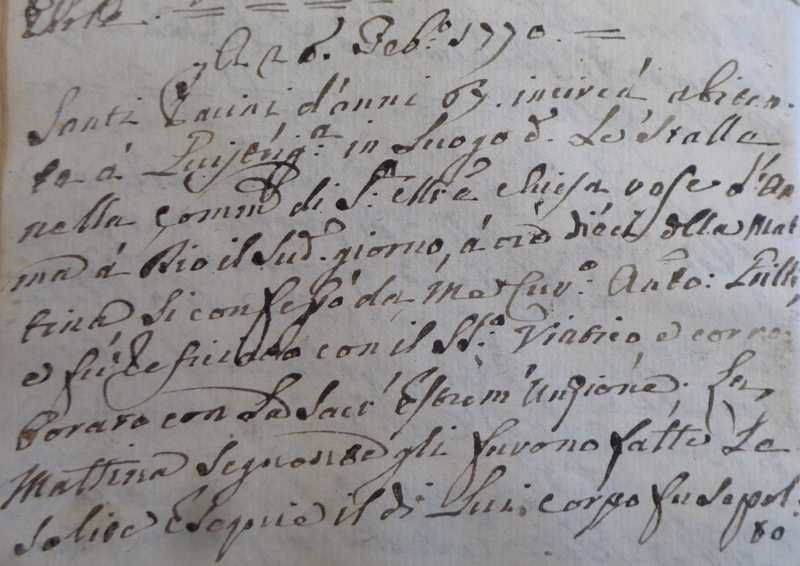 A 26. Feb.º 1770.
Santi Pacini d'anni 67. incircà abitan-
te à in Luogo d.º Le Stalla
nella Comm.ª di S.ª Chiesa rese l'Ani
ma à Dio il Sud.º giorno, à ore dieci della Mat
tina, si confessò da Me Cur.º Anto:
e fù Reficiato con il SS.º Viatico e corro-
borato con La Sacr' Estrem' Unzione. La
Mattina Seguente gli furono fatte Le
Solite Esequie il di Lui corpo fu sepol-
to